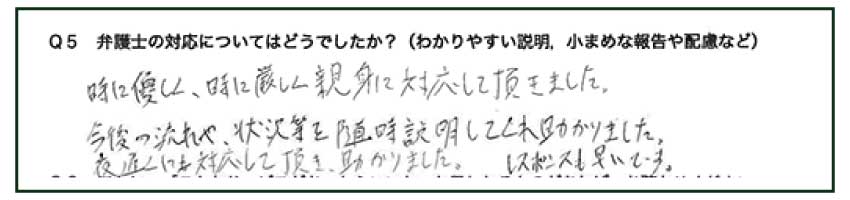 Q5 弁護士の対応についてはどうでしたか？（わかりやすい説明，小まめな報告や配慮など）
時に優しく、時に厳しく親身に対応して頂きました。
今後の流れや、状況等を随時説明してくれ助かりました。
夜近くにも対応して頂き、助かりました。 レスポンスも早いです。